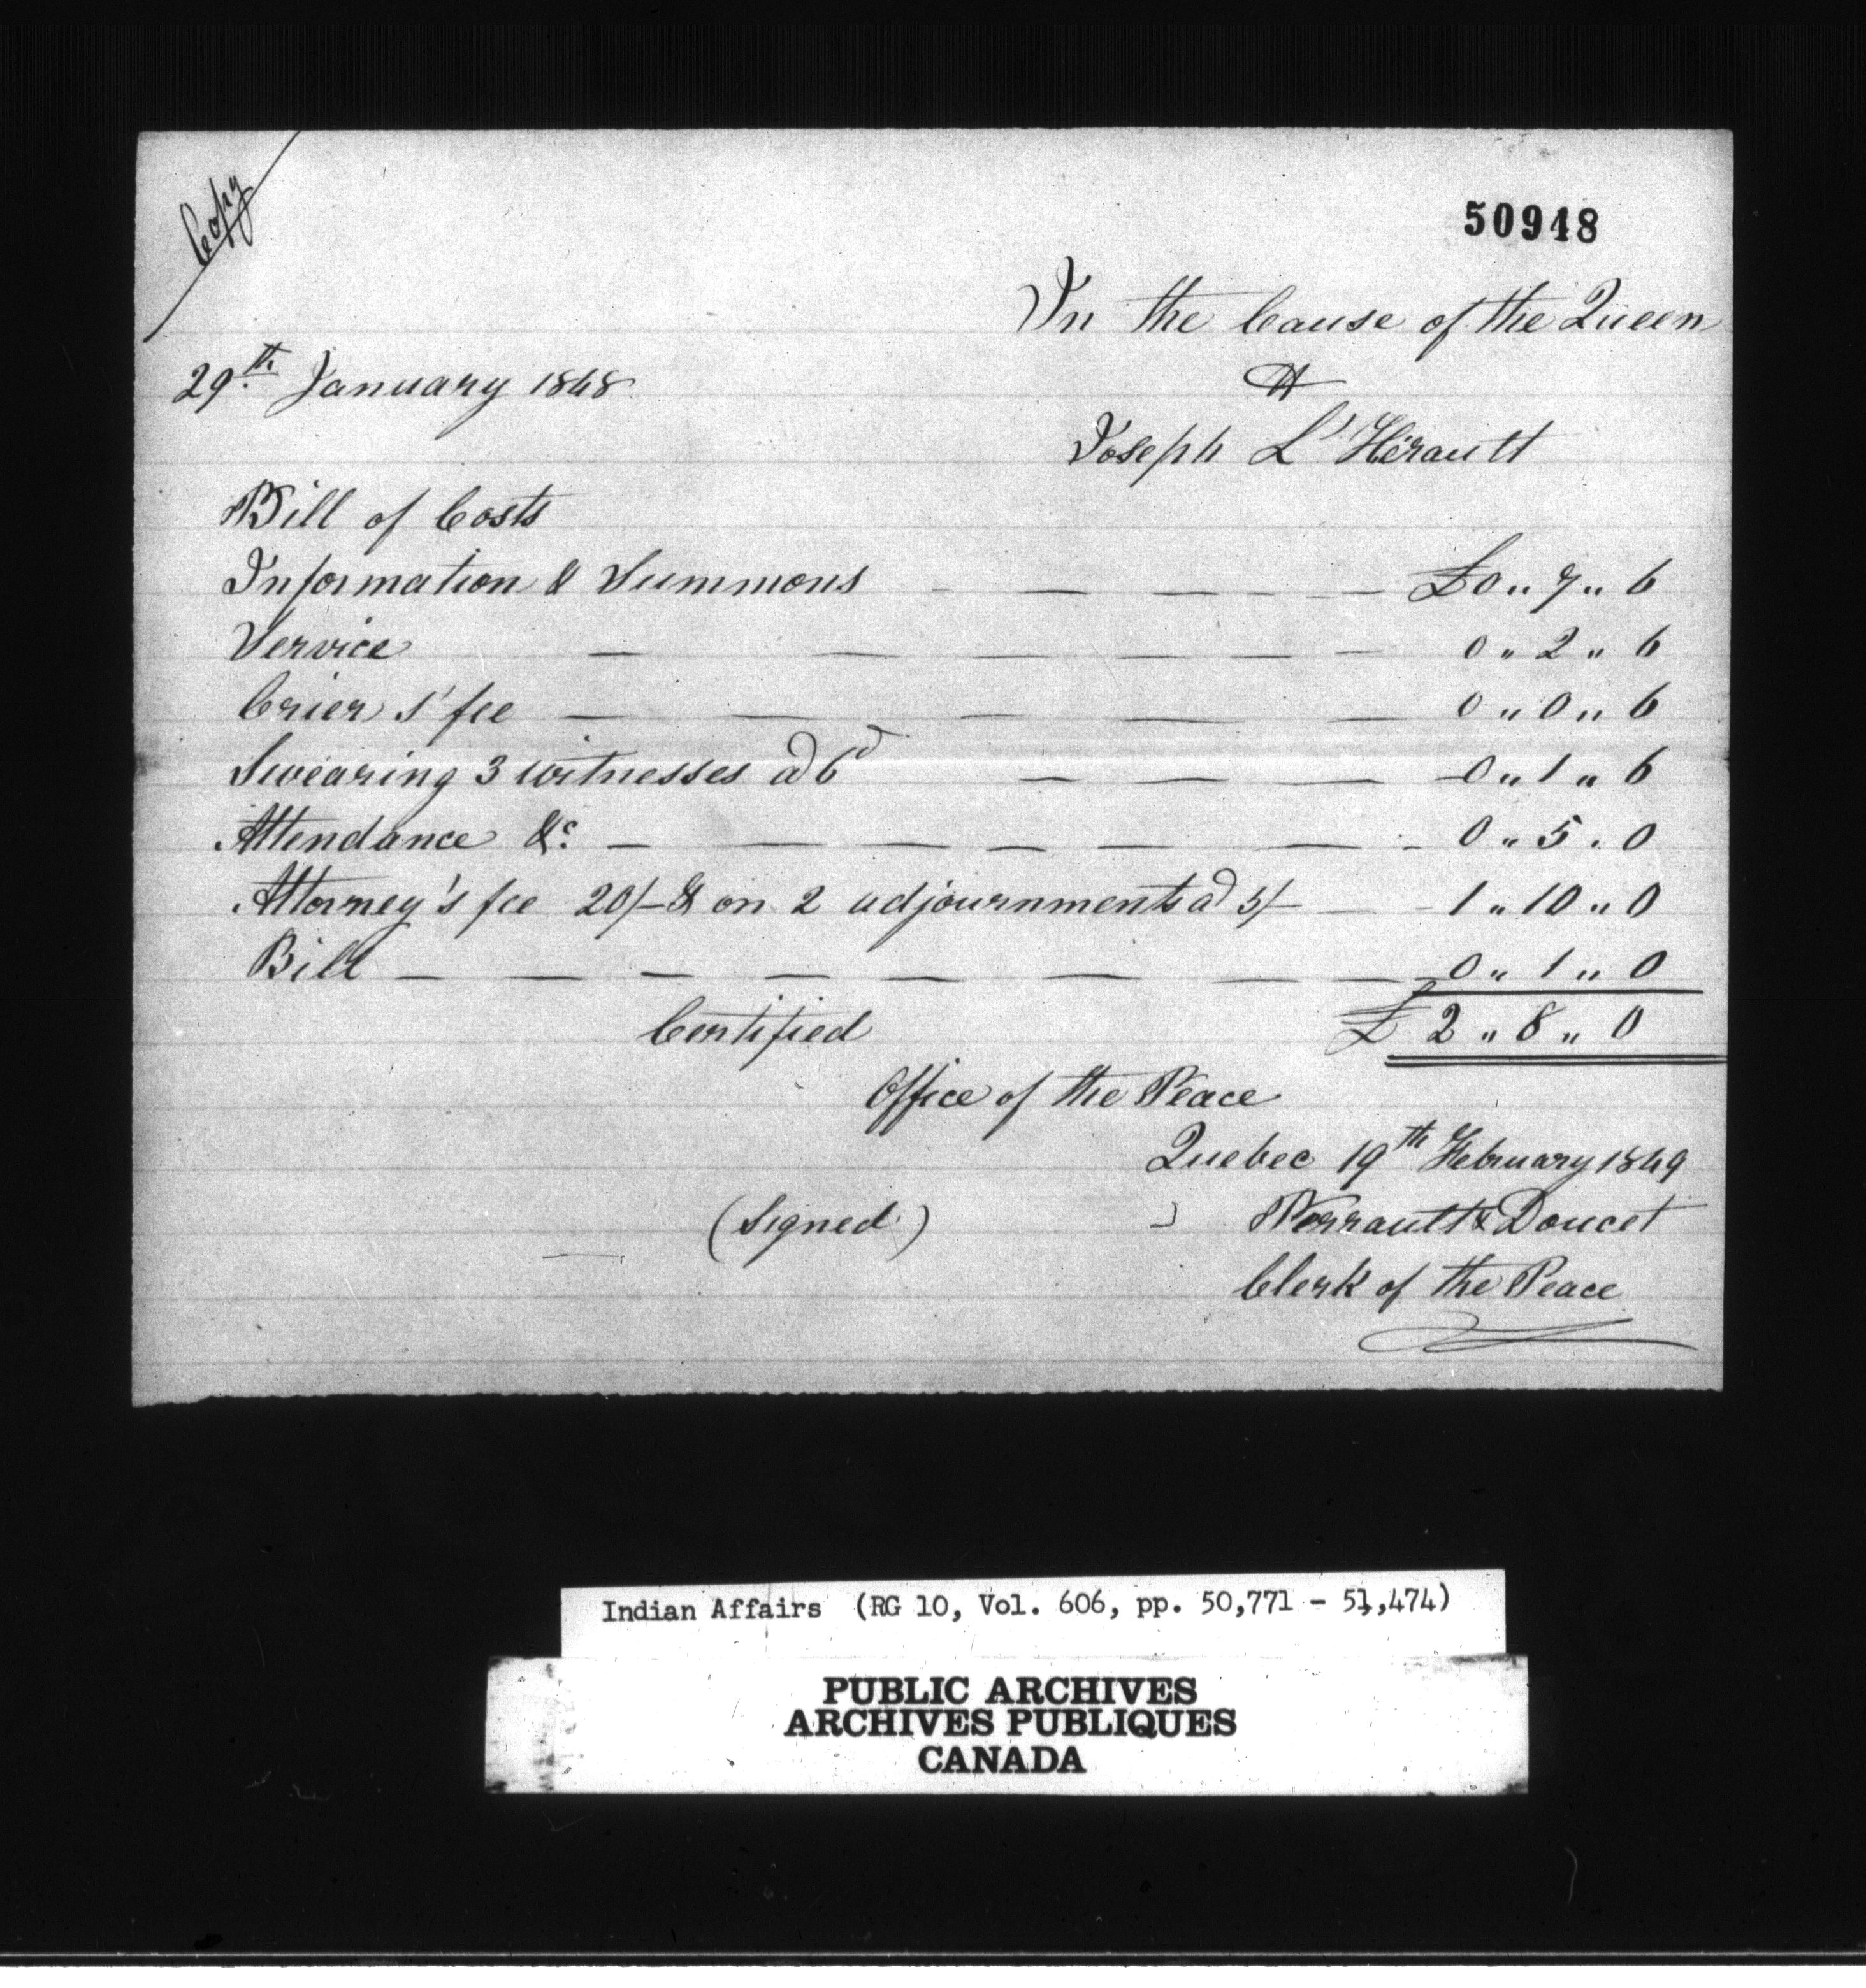 Copy
50948
In the Cause of the Queen
29th January 1848
Joseph L'Hérault
Bill of Costs
Information & Summons £0 " 7 " 6
Service 0 " 2 " 6
Crier's fee 0 " 0 " 6
Swearing 3 witnesses a 6d 0 " 1 " 6
Attendance &c 0 " 5 " 0
Attorney's fee 20/- & on 2 adjournments a 5/- 1 " 10 " 0
Bill 0 " 1 " 0
Certified £ 2 " 8 " 0
Office of the Peace
Quebec 19th February 1849
(Signed) Perrault & Doucet
Clerk of the Peace
Indian Affairs (RG 10, Vol. 606, pp. 50,771 - 51,474)
PUBLIC ARCHIVES
ARCHIVES PUBLIQUES
CANADA